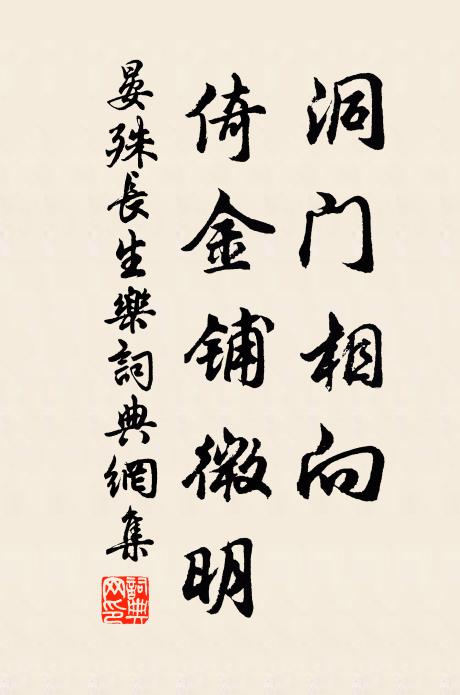 洞门相向
倚金铺微明
晏殊長生樂詞典網集
詞典网印